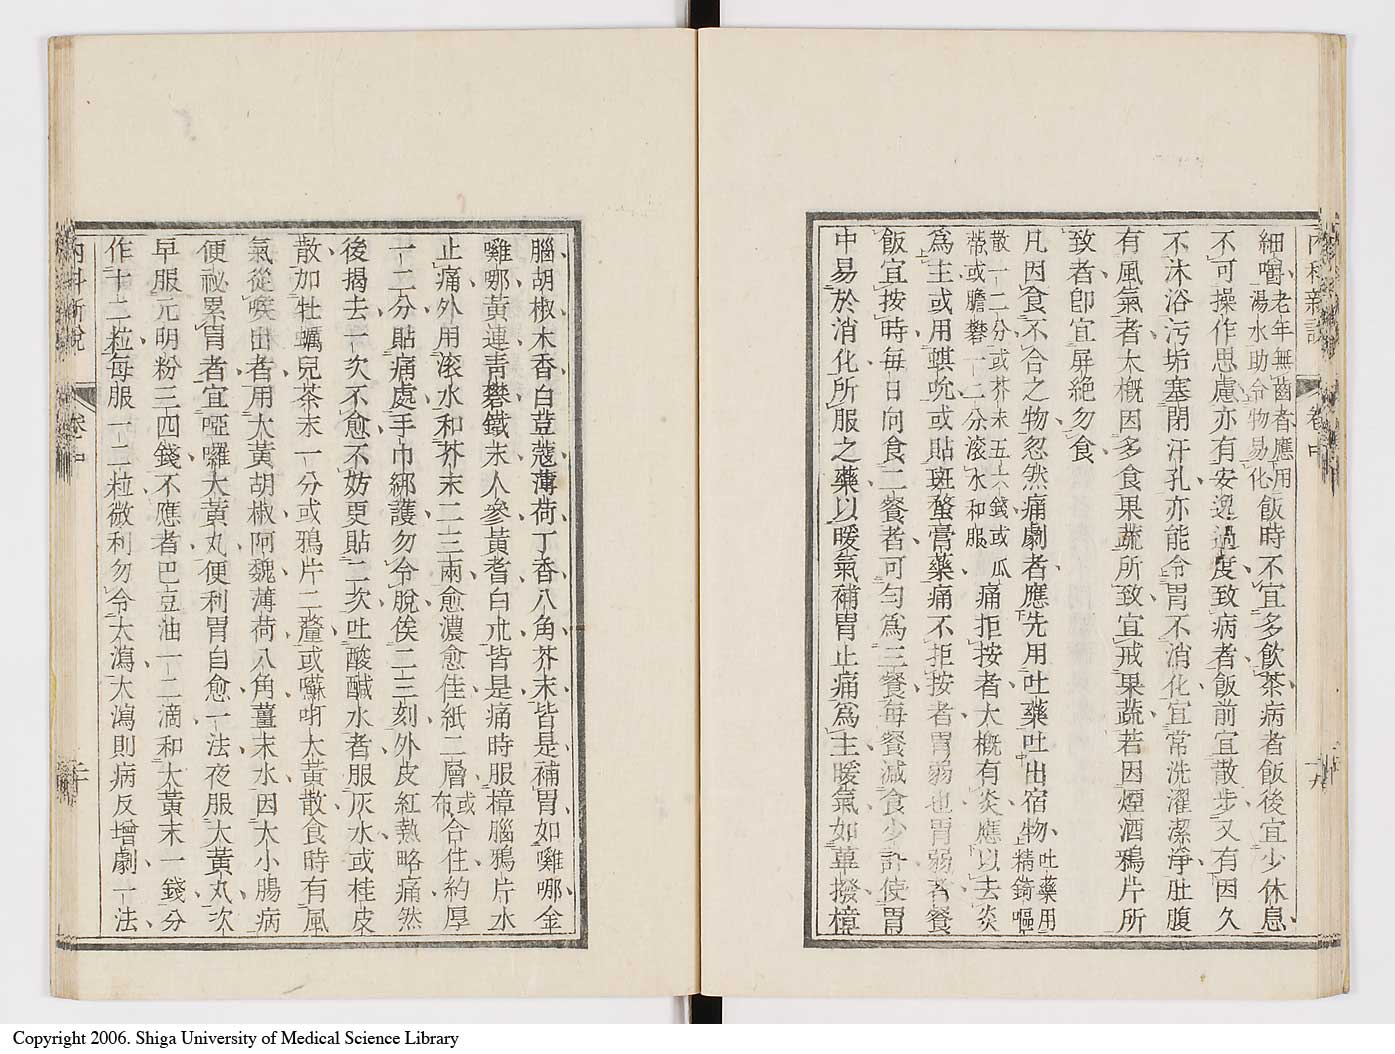 內科新說 卷中
細嚼老年無齒者應用湯水助令物易化飯時不宜多飲茶病者飯後宜少休息
不可操作思慮亦有安逸過度致病者飯前宜散步又有因久
不沐浴污垢塞閉汗孔亦能令胃不消化宜常洗濯潔淨肚腹
有風氣者大槪因多食果蔬所致宜戒果蔬若因煙酒鴉片所
致者卽宜屏絕勿食
凡因食不合之物忽然痛劇者應先用吐藥吐出宿物吐藥用精錡嘔
散一二分或芥末五六錢或瓜蒂或膽礬一二分滚水和服痛拒按者大槪有炎應以去炎
爲主或用蜞吮或貼斑蝥膏藥痛不拒按者胃弱也胃弱者餐
飯宜按時每日向食二餐者可勻爲三餐每餐減食少許使胃
中易於消化所服之藥以暖氣補胃止痛爲主暖氣如蓽撥樟
腦胡椒木香白荳蔻薄荷丁香八角芥末皆是補胃如囄哪金
囄哪黃連靑礬鐵末人參黃耆白朮皆是痛時服樟腦鴉片水
止痛外用滚水和芥末二三兩愈濃愈佳紙二層或布合住約厚
一二分貼痛處手巾綁護勿令脫俟二三刻外皮紅熱略痛然
後揭去一次不愈不妨更貼二次吐酸醎水者服灰水或桂皮
散加牡蠣兒茶末一分或鴉片二釐或囌㕭大黃散食時有風
氣從喉出者用大黃胡椒阿魏薄荷八角薑末水因大小腸病
便祕累胃者宜啞囉大黃丸便利胃自愈一法夜服大黃丸次
早服元明粉三四錢不應者巴豆油一二滴和大黃末一錢分
作十二粒每服一二粒微利勿令大瀉大瀉則病反增劇一法
內科新說 卷中 二十
Copyright 2006. Shiga University of Medical Science Library